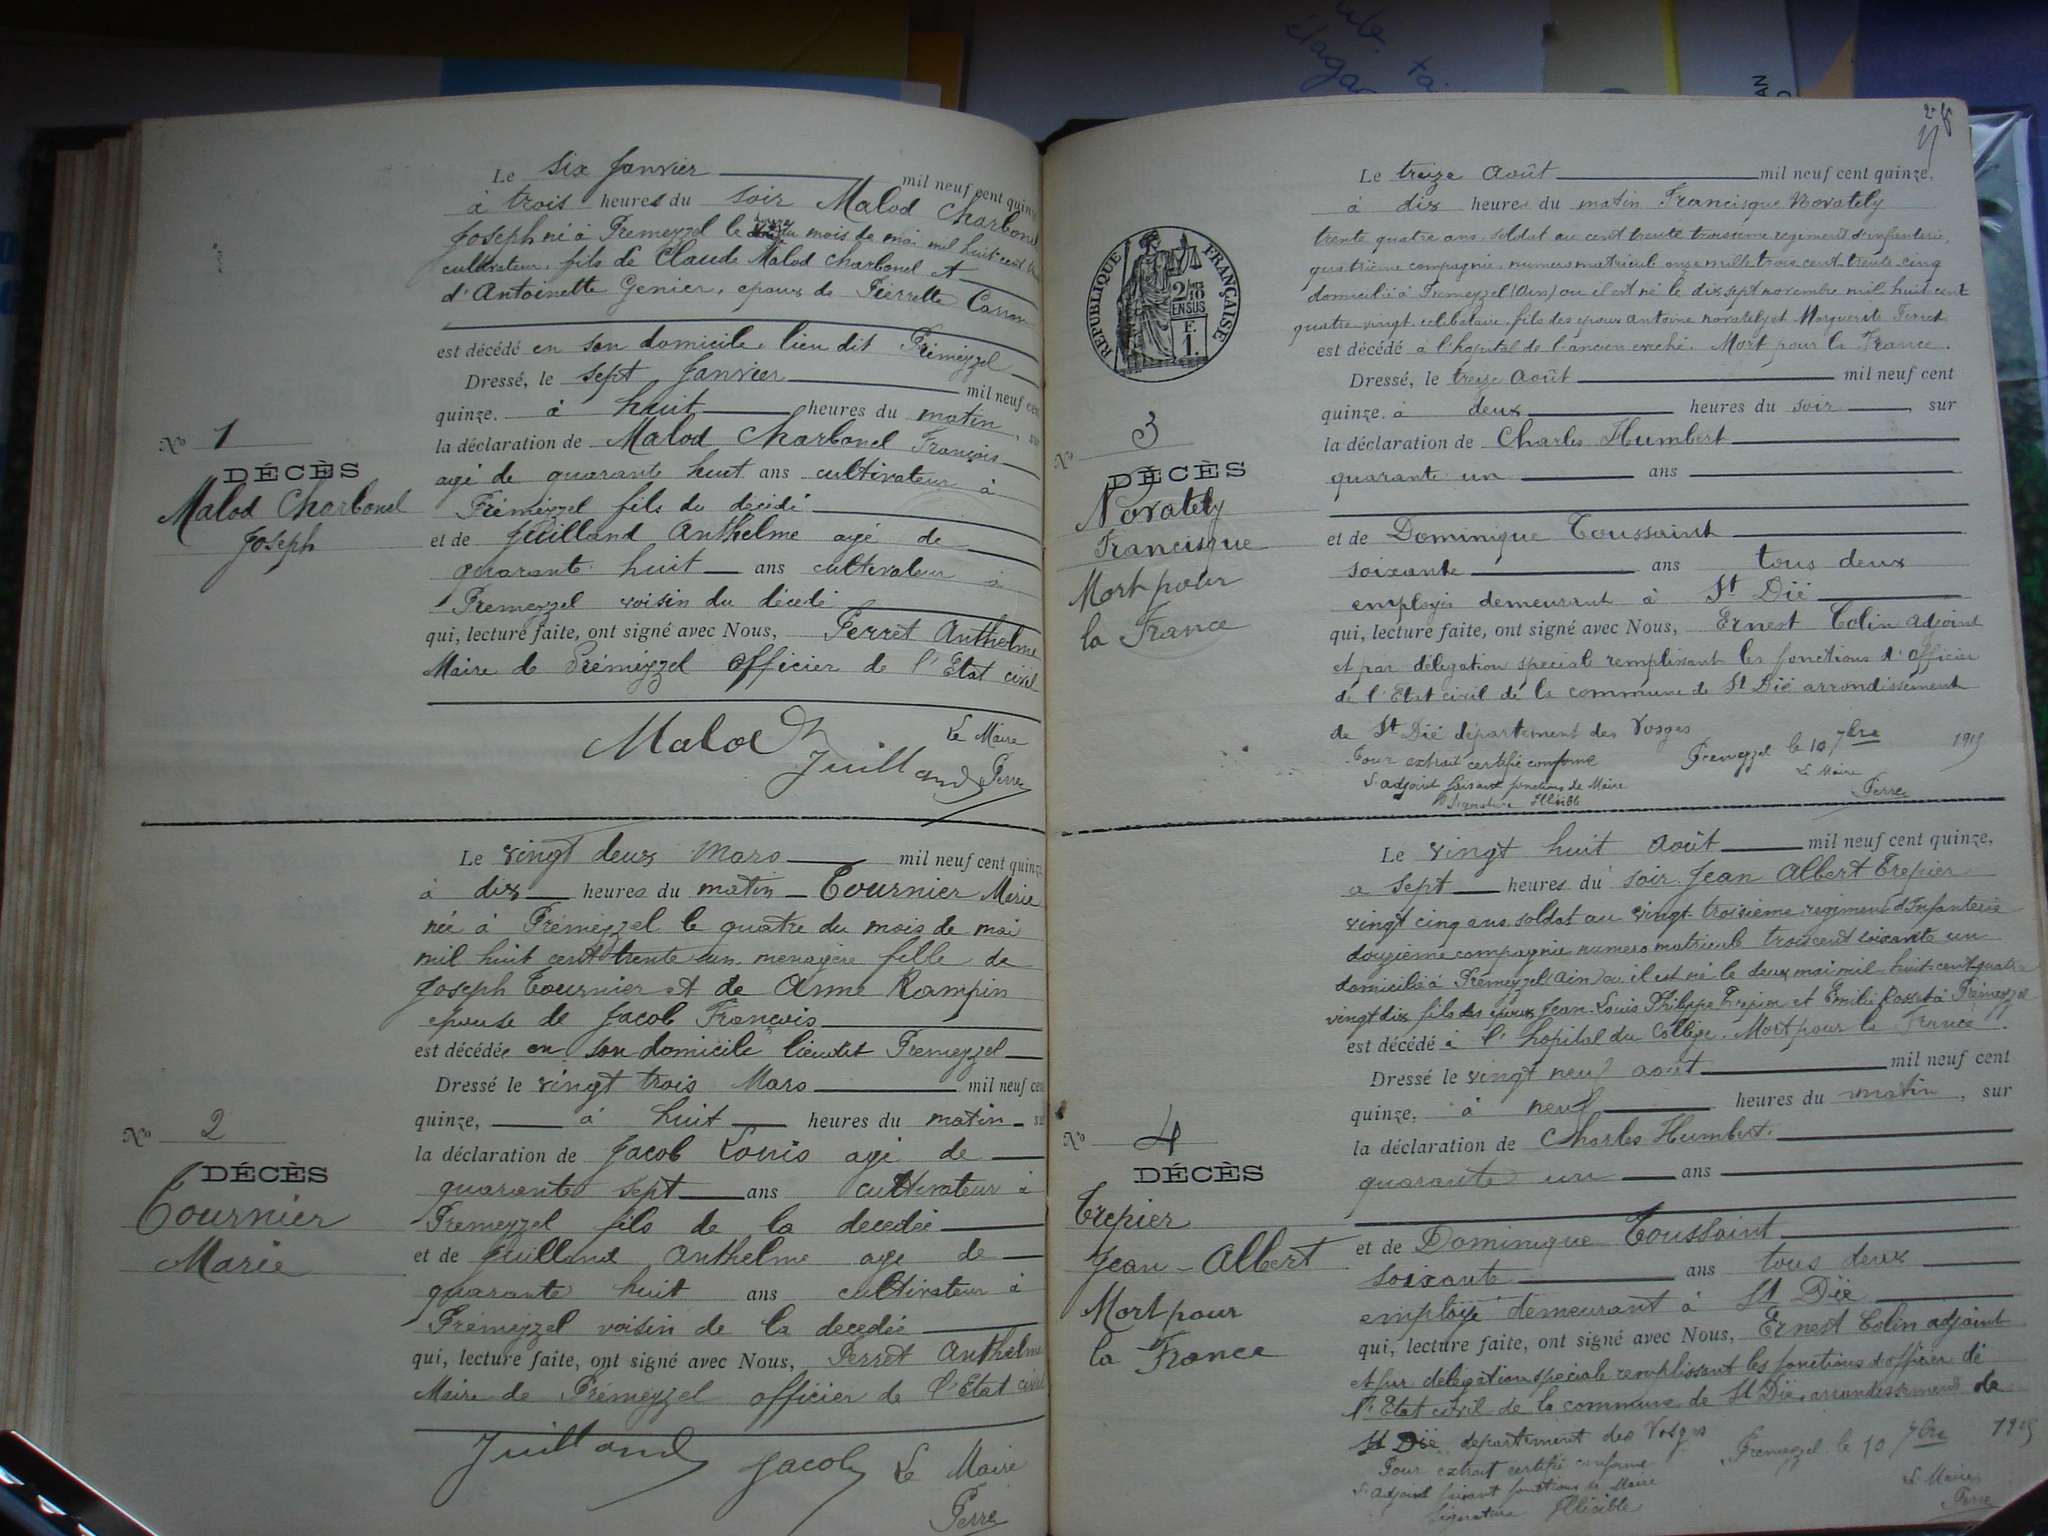 Le six Janvier mil neuf cent quinze
à trois heures du soir Malod Charbonel
Joseph né à Prémeyzel le du mois de mai mil huit cent
cultivateur, fils de Claude Malod Charbonel et
d'Antoinette Genier, epoux de Pierrette
est décédé en son domicile, lieu dit Prémeyzel
Dressé, le sept Janvier mil neuf cent
quinze. à huit heures du matin, sur
la déclaration de Malod Charbonel François
agé de quarante huit ans cultivateur à
Prémeyzel fils du décédé
et de Juilland Anthelme agé de
quarante huit ans cultivateur à
Premeyzel voisin du décédé
qui, lecture faite, ont signé avec Nous, Perret Anthelme
Maire de Prémeyzel officier de l'Etat civil
Malod Juilland Le Maire
Perre
No 1
DÉCÈS
Malod Charbonel
Joseph
Le vingt deux Mars mil neuf cent quinze
à dix heures du matin Tournier Marie
née à Prémeyzel le quatre du mois de mai
mil huit cent trente un menagère fille de
Joseph Tournier et de Anne Rampin
epouse de Jacob François
est décédée en son domicile lieudit Premeyzel
Dressé le vingt trois Mars mil neuf cent
quinze, à huit heures du matin su
la déclaration de Jacob Louis agé de
quarante sept ans cultivateur à
Premeyzel fils de la decedée
et de Juilland Anthelme age de
quarante huit ans cultivateur à
Prémeyzel voisin de la decedée
qui, lecture faite, ont signé avec Nous, Perret Anthelme
Maire de Prémeyzel officier de l'Etat civil
Juilland Jacob Le Maire
Perre
No 2
DÉCÈS
Tournier
Marie
Le treize Août mil neuf cent quinze,
à dix heures du matin Francisque Novately
trente quatre ans soldat au cent trente troisieme regiment d'infanterie,
quatrième compagnie, numero matricule onze mille trois cent trente cinq
domicilié à Premeyzel (Ain) ou il est né le dix sept novembre mil huit cent
quatre-vingt, celibataire, fils des epoux Antoine Novately et Marguerite
est décédé à l'hopital de l'ancien eveché. Mort pour la France.
Dressé, le treize Août mil neuf cent
quinze. à deux heures du soir, sur
la déclaration de Charles Humbert
quarante un ans
et de Dominique Toussaint
soixante ans tous deux
employés demeurant à St Dié
qui, lecture faite, ont signé avec Nous, Ernest Colin adjoint
et par délégation speciale remplissant les fonctions d'officier
de l'Etat civil de la commune de St Dié arrondissement
de St Dié département des Vosges
Pour extrait certifié conforme Premeyzel le 10 7bre 1915
L'adjoint faisant fonctions de Maire Le Maire
Signature Illisible Perre
RÉPUBLIQUE FRANÇAISE
2/10
EN SUS
F.
1.
No 3
DÉCÈS
Novately
Francisque
Mort pour
la France
Le vingt huit Août mil neuf cent quinze,
a sept heures du soir Jean Albert Trepier
vingt cinq ans soldat au vingt-troisieme regiment d'Infanterie
douzieme compagnie numero matricule trois cent soixante un
domicilié à Prémeyzel (Ain) ou il est né le deux mai mil huit cent quatre
vingt dix fils des epoux Jean Louis Philippe Trepier et Emilie à Prémeyzel
est décédé à l'hopital du College. Mort pour la France.
Dressé le vingt neuf août mil neuf cent
quinze, à neuf heures du matin, sur
la déclaration de Charles Humbert.
quarante un ans
et de Dominique Toussaint
soixante ans tous deux
employé demeurant à St Dié
qui, lecture faite, ont signé avec Nous, Ernest Colin adjoint
et par delegation speciale remplissant les fonctions d'officier de
l'Etat civil de la commune de St Dié, arrondissement de
St Dié departement des Vosges
Pour extrait certifié conforme Premeyzel le 10 7bre 1915
L'adjoint faisant fonctions de Maire Le Maire
Signature Illisible Perre
No 4
DÉCÈS
Trepier
Jean-Albert
Mort pour
la France